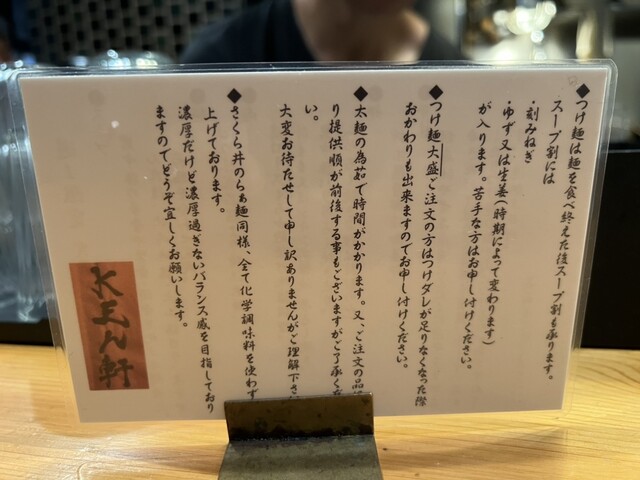 ◆つけ麺は麺を食べ終えた後スープ割も承ります。
スープ割には
・刻みねぎ
・ゆず又は生姜(時期によって変わります)
が入ります。苦手な方はお申し付けください。
◆つけ麺大盛ご注文の方はつけダレが足りなくなった際
おかわりも出来ますのでお申し付けください。
◆太麺の為茹で時間がかかります。又、ご注文の品
り提供順が前後する事もございますがご了承くだ
い。
大変お待たせして申し訳ありませんがご理解下さ
◆さくら井のらぁ麺同様、全て化学調味料を使わず
上げております。
濃厚だけど濃厚過ぎないバランス感を目指しており
ますのでどうぞ宜しくお願いします。
軒